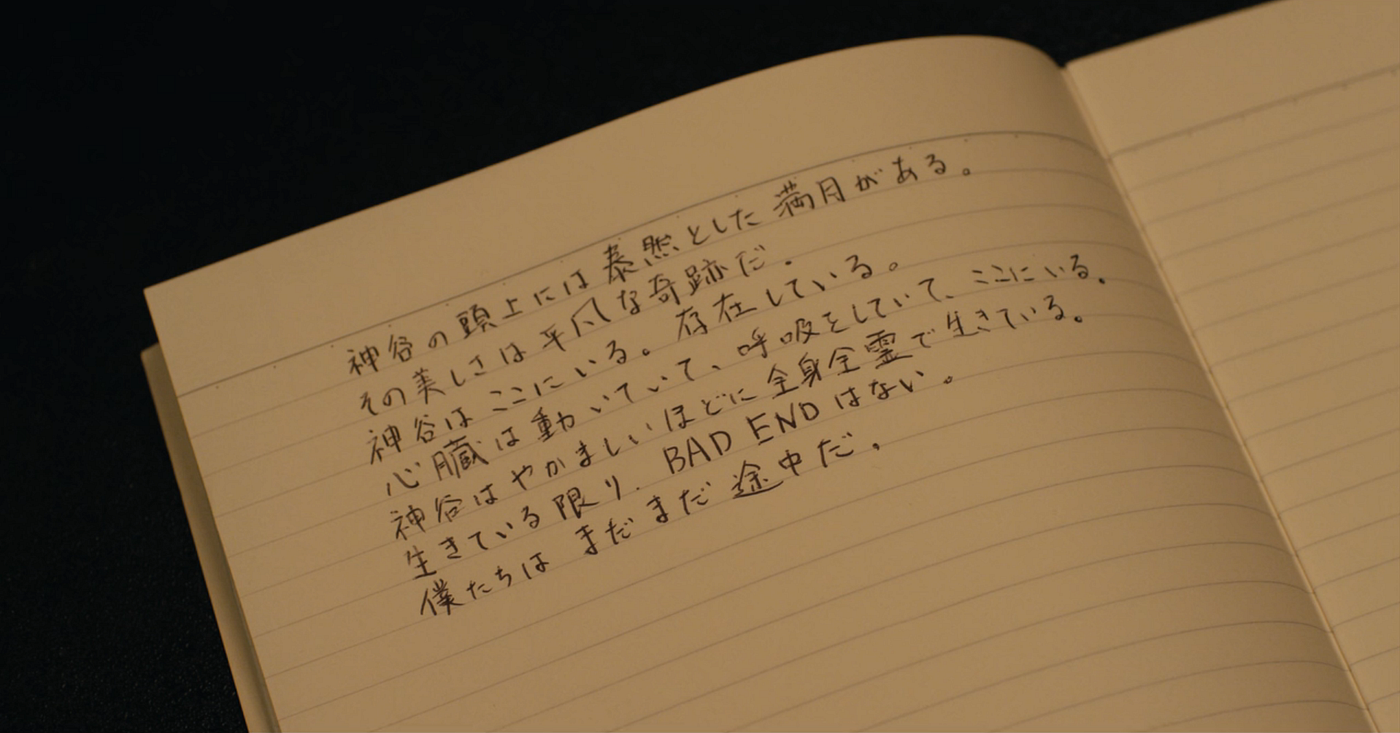 神谷の頭上には泰然とした満月がある。
その美しさは平凡な奇跡だ.
神谷はここにいる。存在している。
心臓は動いていて、呼吸をしていて、ここにいる.
神谷はやかましいほどに全身全霊で生きている。
生きている限り. BAD ENDはない。
僕たちはまだまだ途中だ.